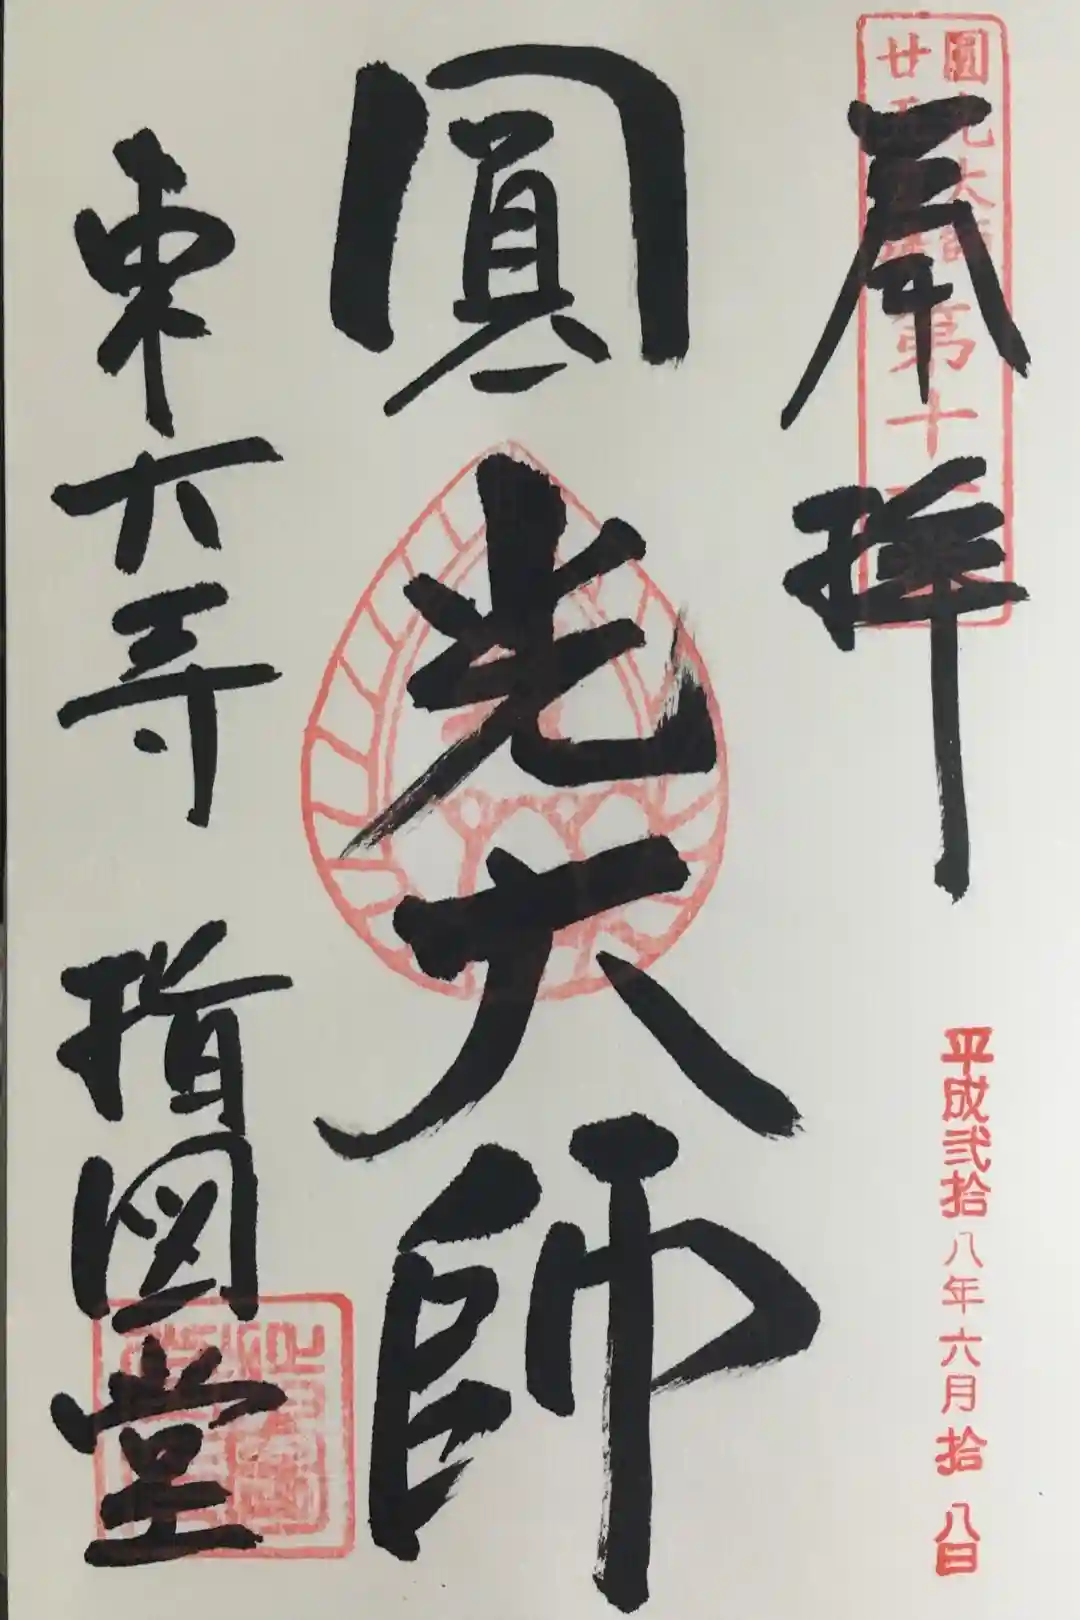 奉拝
圓光大師
廿五
第十
平成弐拾八年六月拾八日
圓光大師
東大寺
指図堂